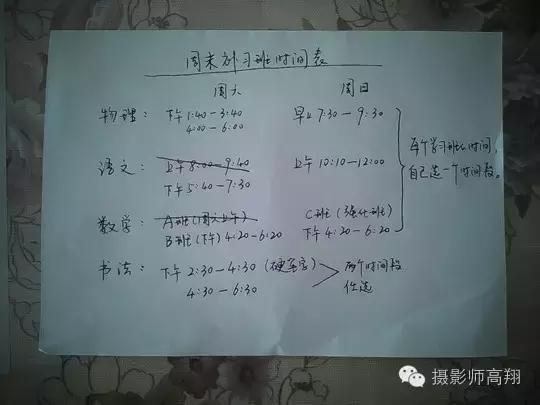 周末补习班时间表
周六 周日
物理： 下午 1:40-3:40 早上 7:30-9:30
4:00-6:00
每个学习班的时间，
自己选一个时间段。
语文： 上午 8:00-9:40 上午 10:10-12:00
下午 5:40-7:30
数学： A班(周六上午) C班(强化班)
B班(下午) 4:20-6:20 下午 4:20-6:20
书法： 下午 2:30-4:30 (硬笔字) 两个时间段
4:30-6:30 任选
摄影师高翔